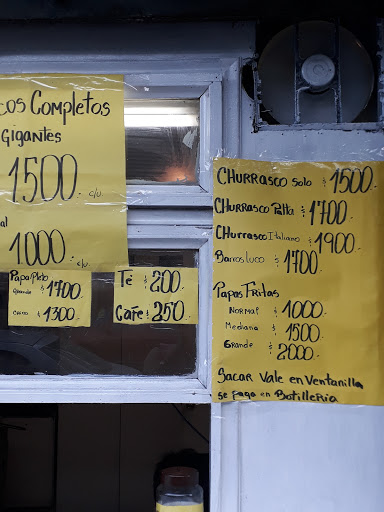 cos Completos
Gigantes
1500.- c/u.
al
1000.- c/u
Papa Pleto
Grande $1700
Chico $1300.-
Té $200
Café $250.
CHURRASCO Solo $1500.-
CHURRASCO Palta $1700
CHURRASCO Italiano $1900
Barros luco $1700.-
Papas Fritas
Normal $1000
Mediana $1500
Grande $2000.-
Sacar Vale en Ventanilla
se paga en Botilleria